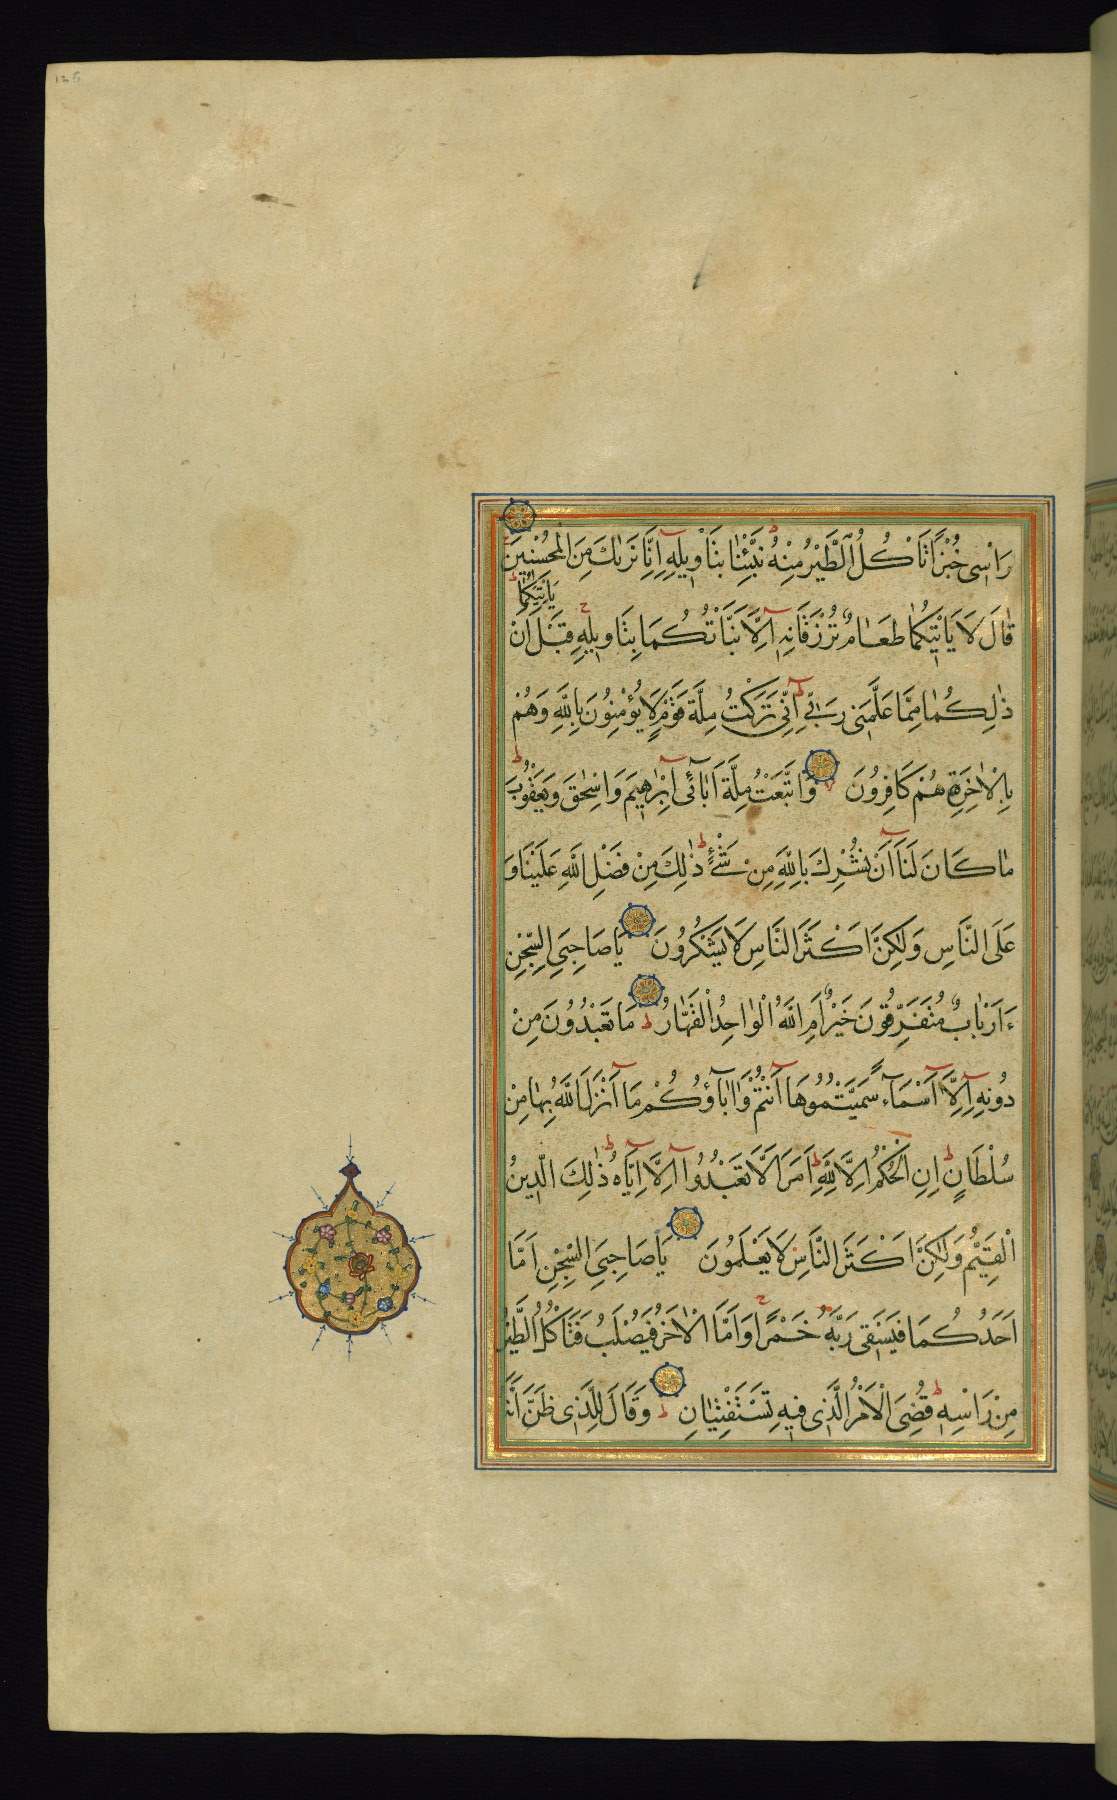 125
رَاْسِى خُبْزًا تَاْكُلُ الطَّيْرُ مِنْهُ نَبِّئْنَا بِتَاْوِيلِهِ اِنَّا نَرٰيكَ مِنَ الْمُحْسِنِينَ
يَاْتِيَكُمَا
قَالَ لَا يَاْتِيكُمَا طَعَامٌ تُرْزَقَانِهِ اِلَّا نَبَّاْتُكُمَا بِتَاْوِيلِهِ قَبْلَ اَنْ
ذٰلِكُمَا مِمَّا عَلَّمَنِى رَبِّى اِنِّى تَرَكْتُ مِلَّةَ قَوْمٍ لَا يُؤْمِنُونَ بِاللّٰهِ وَهُمْ
بِالْاٰخِرَةِ هُمْ كَافِرُونَ وَاتَّبَعْتُ مِلَّةَ اٰبَائِى اِبْرٰهِيمَ وَاِسْحٰقَ وَيَعْقُوبَ
مَا كَانَ لَنَا اَنْ نُشْرِكَ بِاللّٰهِ مِنْ شَىْءٍ ذٰلِكَ مِنْ فَضْلِ اللّٰهِ عَلَيْنَا وَ
عَلَى النَّاسِ وَلٰكِنَّ اَكْثَرَ النَّاسِ لَا يَشْكُرُونَ يَا صَاحِبَىِ السِّجْنِ
ءَاَرْبَابٌ مُتَفَرِّقُونَ خَيْرٌ اَمِ اللّٰهُ الْوَاحِدُ الْقَهَّارُ مَا تَعْبُدُونَ مِنْ
دُونِهِ اِلَّا اَسْمَاءً سَمَّيْتُمُوهَا اَنْتُمْ وَاٰبَاؤُكُمْ مَا اَنْزَلَ اللّٰهُ بِهَا مِنْ
سُلْطَانٍ اِنِ الْحُكْمُ اِلَّا لِلّٰهِ اَمَرَ اَلَّا تَعْبُدُوا اِلَّا اِيَّاهُ ذٰلِكَ الدِّينُ
الْقَيِّمُ وَلٰكِنَّ اَكْثَرَ النَّاسِ لَا يَعْلَمُونَ يَا صَاحِبَىِ السِّجْنِ اَمَّا
اَحَدُكُمَا فَيَسْقِى رَبَّهُ خَمْرًا وَاَمَّا الْاٰخَرُ فَيُصْلَبُ فَتَاْكُلُ الطَّيْرُ
مِنْ رَاْسِهِ قُضِىَ الْاَمْرُ الَّذِى فِيهِ تَسْتَفْتِيَانِ وَقَالَ لِلَّذِى ظَنَّ اَنَّهُ